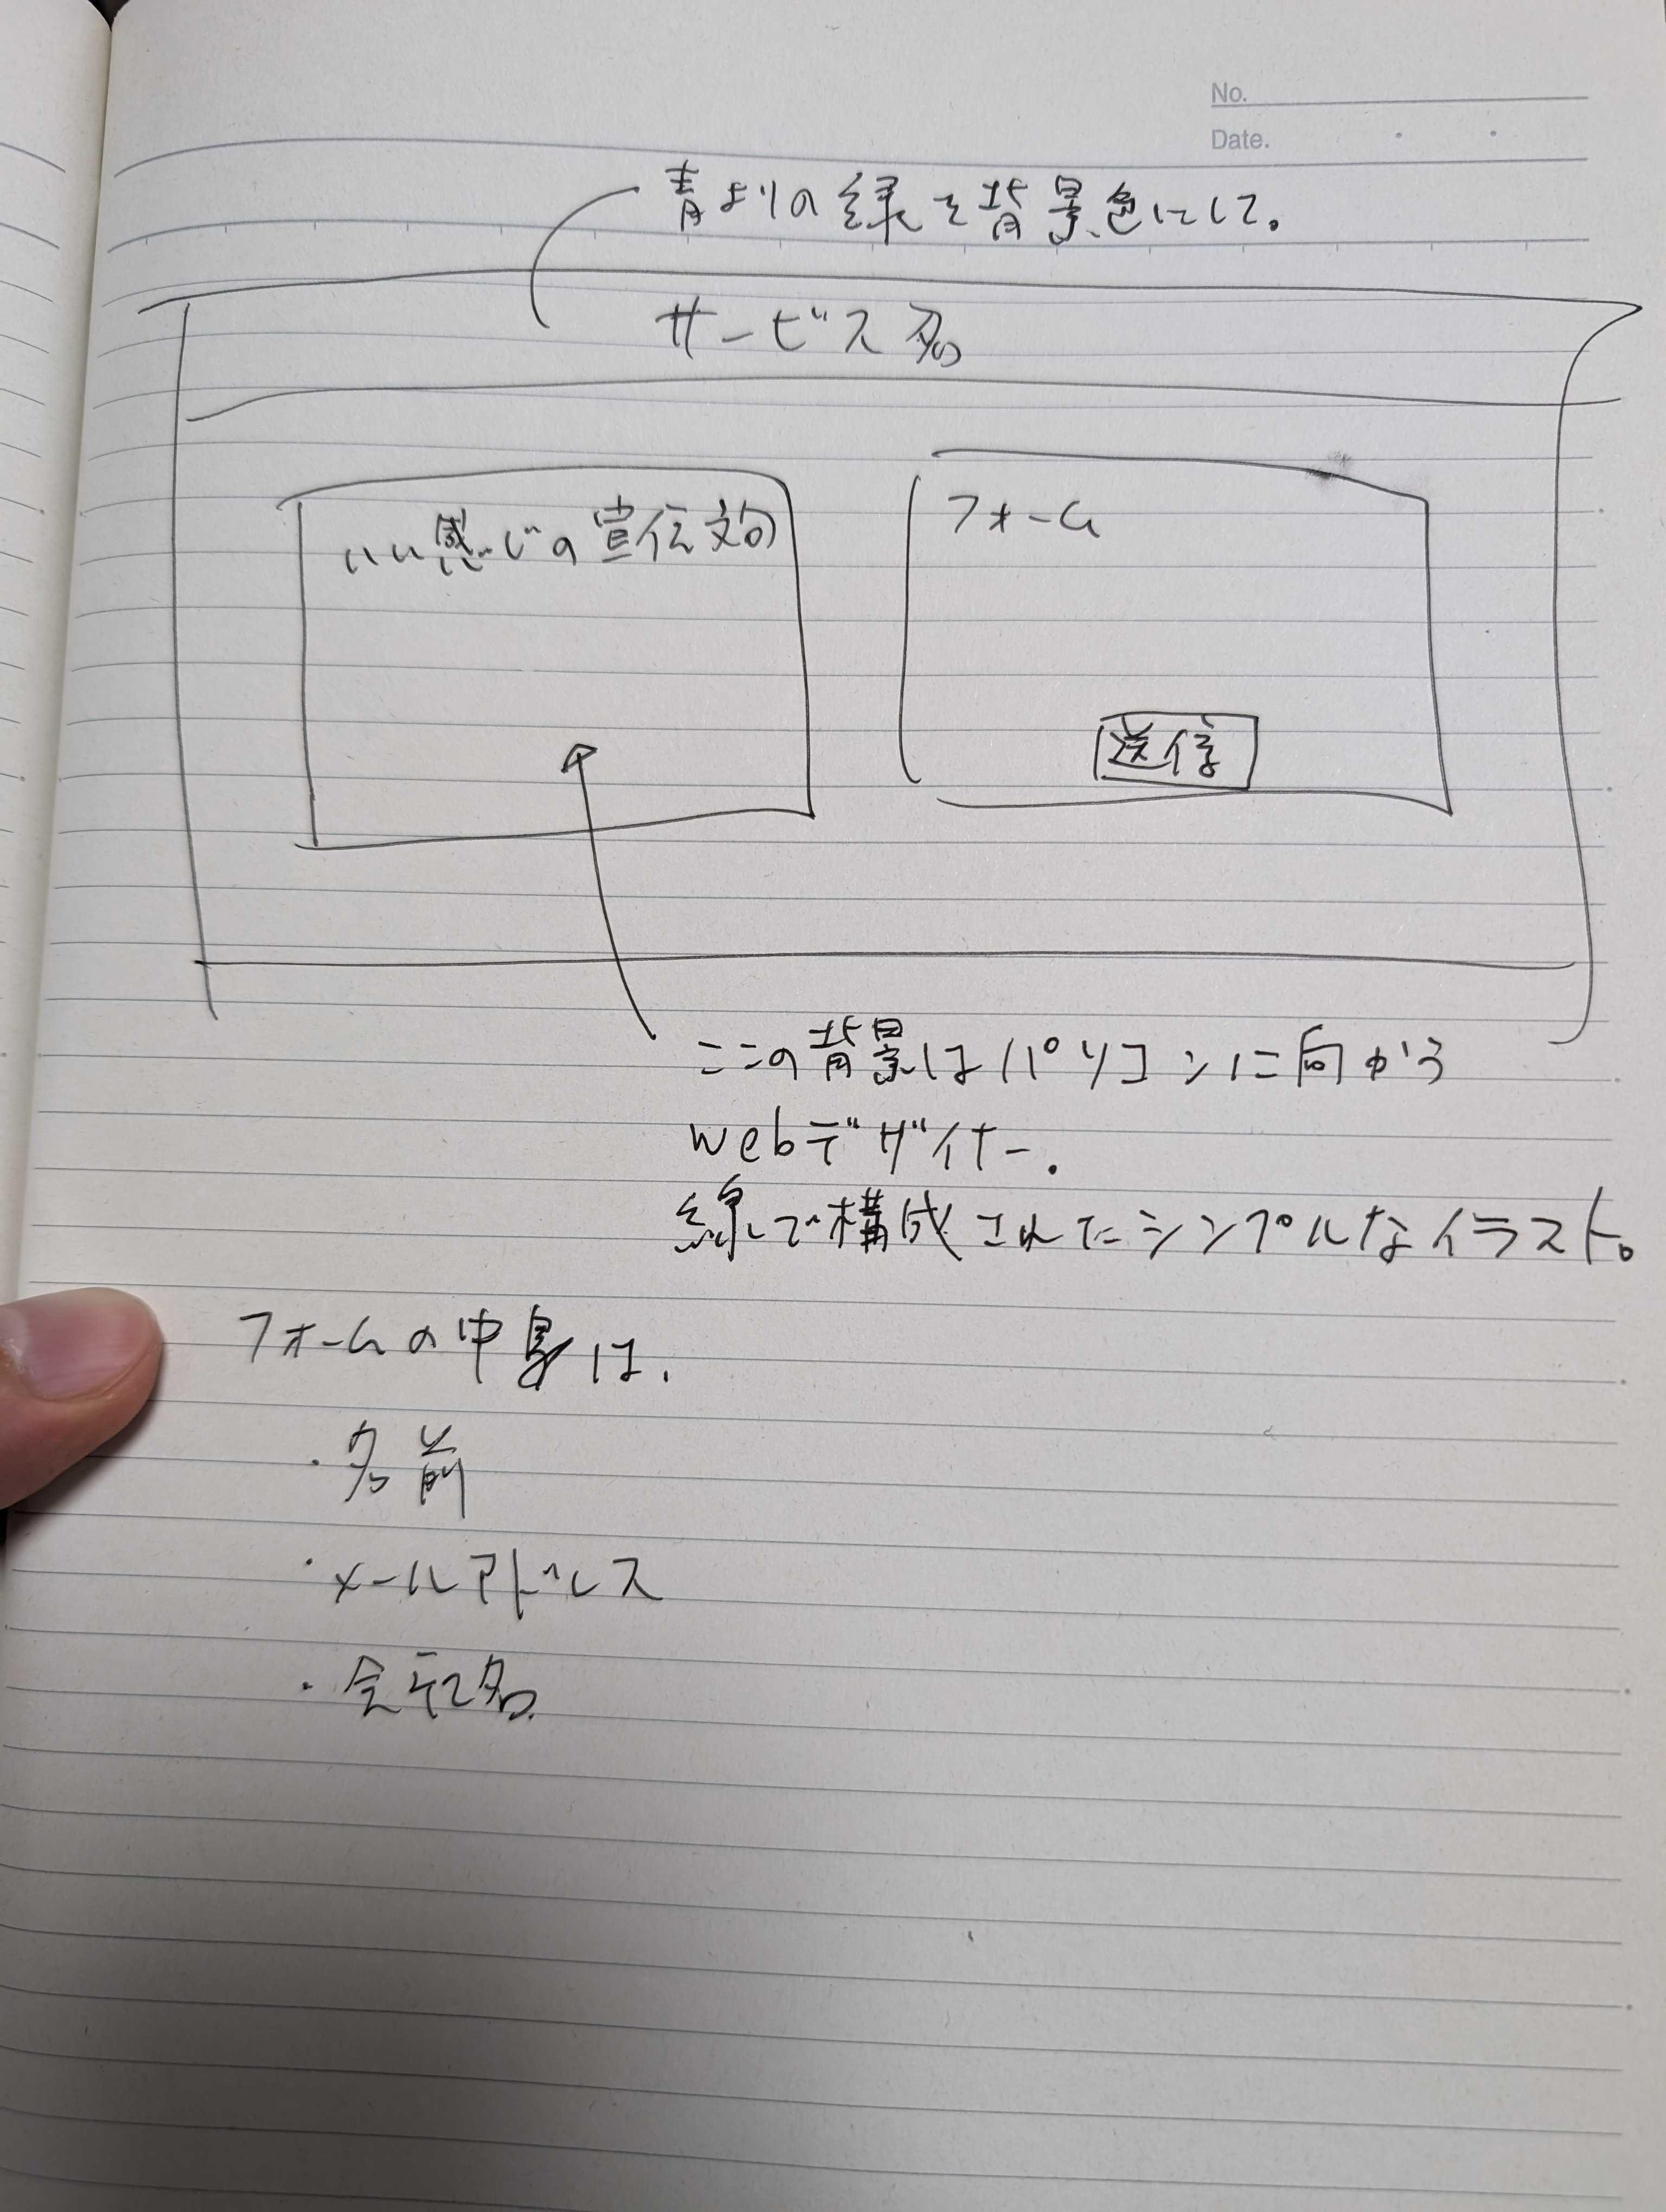 No.
Date.
青よりの緑を背景色にして。
サービス名
いい感じの宣伝文句
フォーム
送信
ここの背景はパソコンに向かう
webデザイナー.
線で構成されたシンプルなイラスト。
フォームの中身は、
・名前
・メールアドレス
・会社名